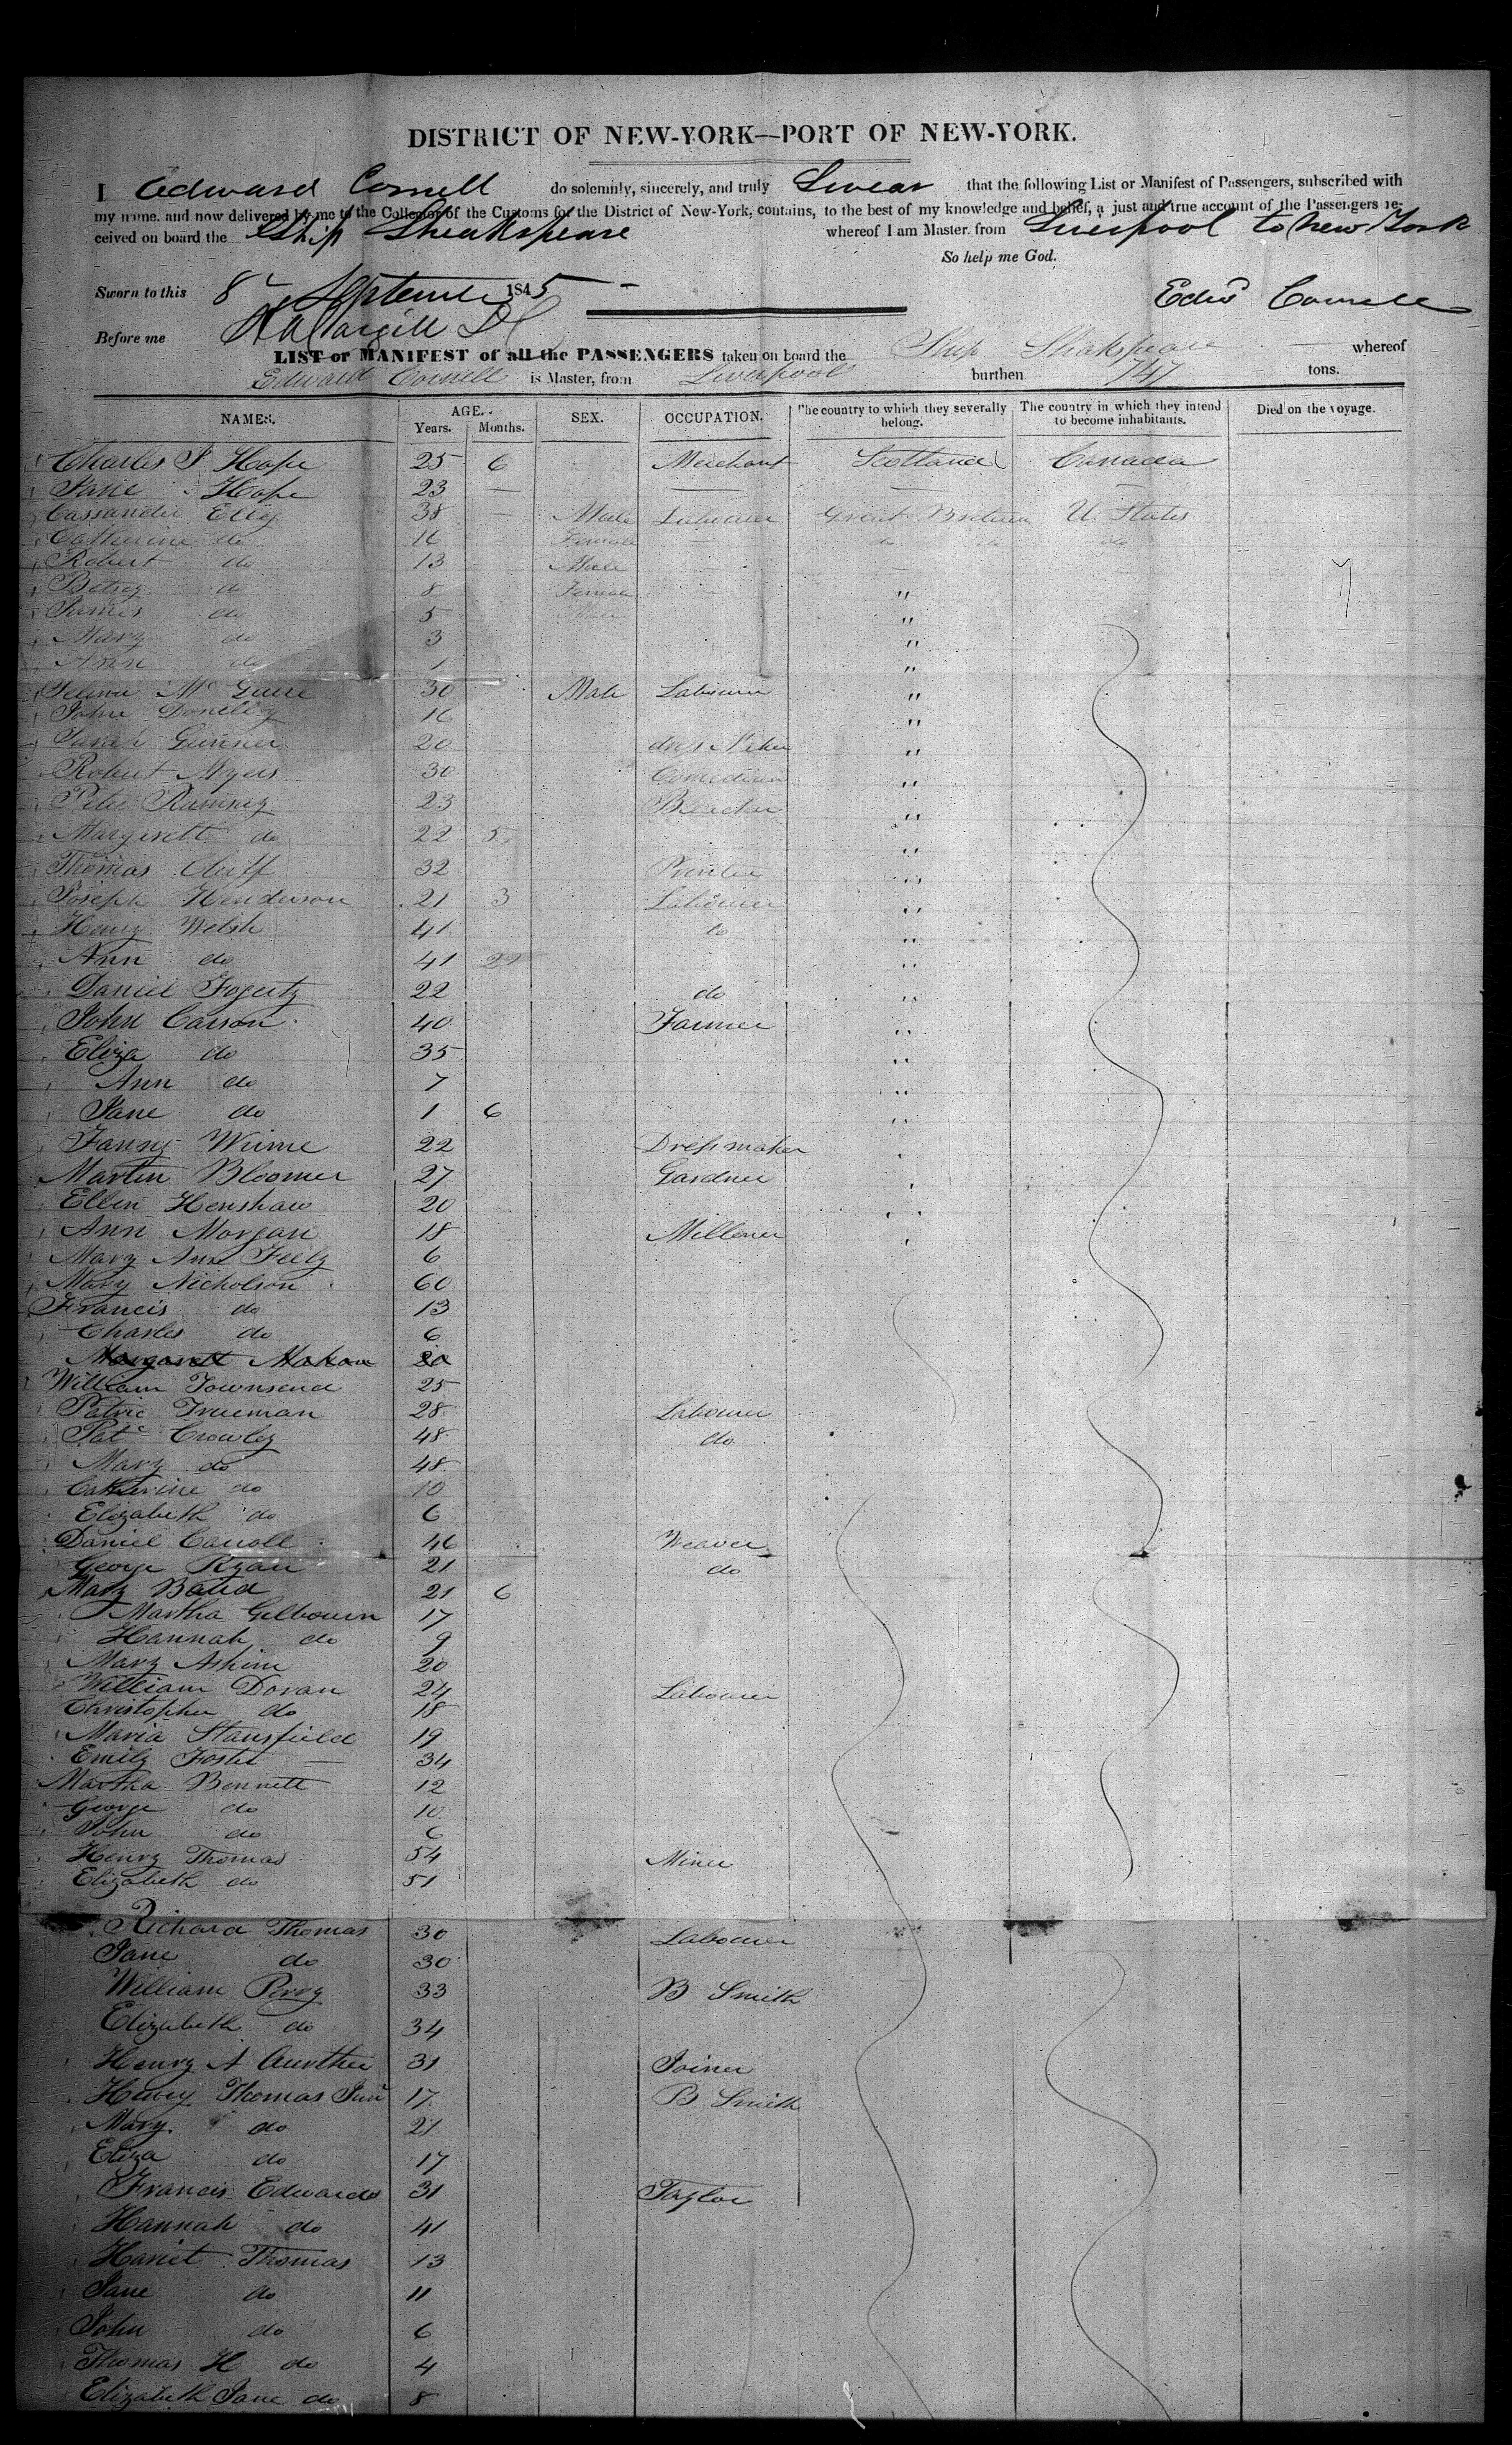 DISTRICT OF NEW-YORK—PORT OF NEW-YORK.
I Edward Cornell do solemnly, sincerely, and truly Swear that the following List or Manifest of Passengers, subscribed with
my name, and now delivered by me to the Collector of the Customs for the District of New-York, contains, to the best of my knowledge and belief, a just and true account of the Passengers re-
ceived on board the Ship Sheakspeare whereof I am Master, from Liverpool to New York
So help me God.
Sworn to this 8 September 1845 Edwd Cornell
Before me
LIST or MANIFEST of all the PASSENGERS taken on board the Ship Shakspeare whereof
Edward Cornell is Master, from Liverpool burthen 747 tons.
NAMES. AGE. Years. Months. SEX. OCCUPATION. The country to which they severally belong. The country in which they intend to become inhabitants. Died on the voyage.
Charles Hope 25 6 Merchant Scotland Canada
Jane Hope 23 — — — —
38 — Male Labourer Great Britain U. States
Catherine do 16 Female — do do do
Robert do 13 Male
Betsey do 8 Female "
James do 5 Male "
Mary do 3 "
Ann do 1 "
30 Male Labourer "
John Donelly 16 "
Sarah Gunner 20 "
Robert Myers 30 Comedian "
Peter 23 Bleacher "
Margarett do 22 5 "
Thomas 32 Printer "
Joseph Henderson 21 3 Labourer "
Henry Welsh 41 do "
Ann do 41 "
Daniel Fogerty 22 do "
John Carson 40 Farmer "
Eliza do 35 "
Ann do 7 "
Jane do 1 6 "
Fanny 22 Dressmaker
Martin Bloomer 27 Gardner
Ellen Henshaw 20
Ann Morgan 18 Millener
Mary Ann Feely 6
Mary Nicholson 60
Francis do 13
Charles do 6
Margarett Mahon 20
William Townsend 25
Patric Trueman 28 Labourer
Patc Crowley 48 do
Mary do 48
Catherine do 10
Elizabeth do 6
Daniel Caroll 46 Weaver
George Ryan 21 do
Mary 21 6
Martha Gelbourn 17
Hannah do 9
Mary 20
William Doran 24 Labourer
Christopher do 18
Maria Stansfield 19
Emily Foster — 34
Martha Bennett 12
George do 10
John do 6
Henry Thomas 54 Miner
Elizabeth do 51
Richard Thomas 30 Labourer
Jane do 30
William Perry 33 B Smith
Elizabeth do 34
Henry A 31 Joiner
Henry Thomas Junr 17 B Smith
Mary do 21
Eliza do 17
Francis Edwards 31 Taylor
Hannah do 41
Hariet Thomas 13
Jane do 11
John do 6
Thomas H do 4
Elizabeth Jane do 8